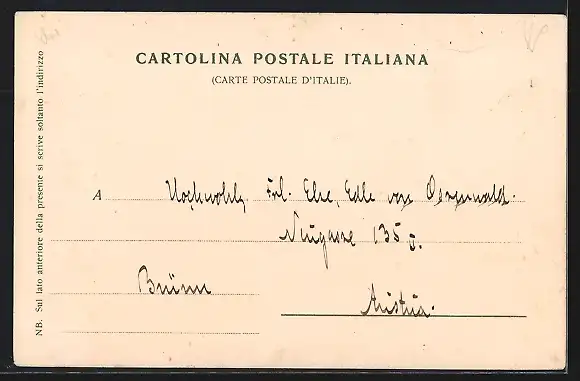 CARTOLINA POSTALE ITALIANA
(CARTE POSTALE D'ITALIE).
NB. Sul lato anteriore della presente si scrive soltanto l'indirizzo
A Hochwohlg. Frl. Else, Edle von
Neugasse 135
Brünn
Austria.